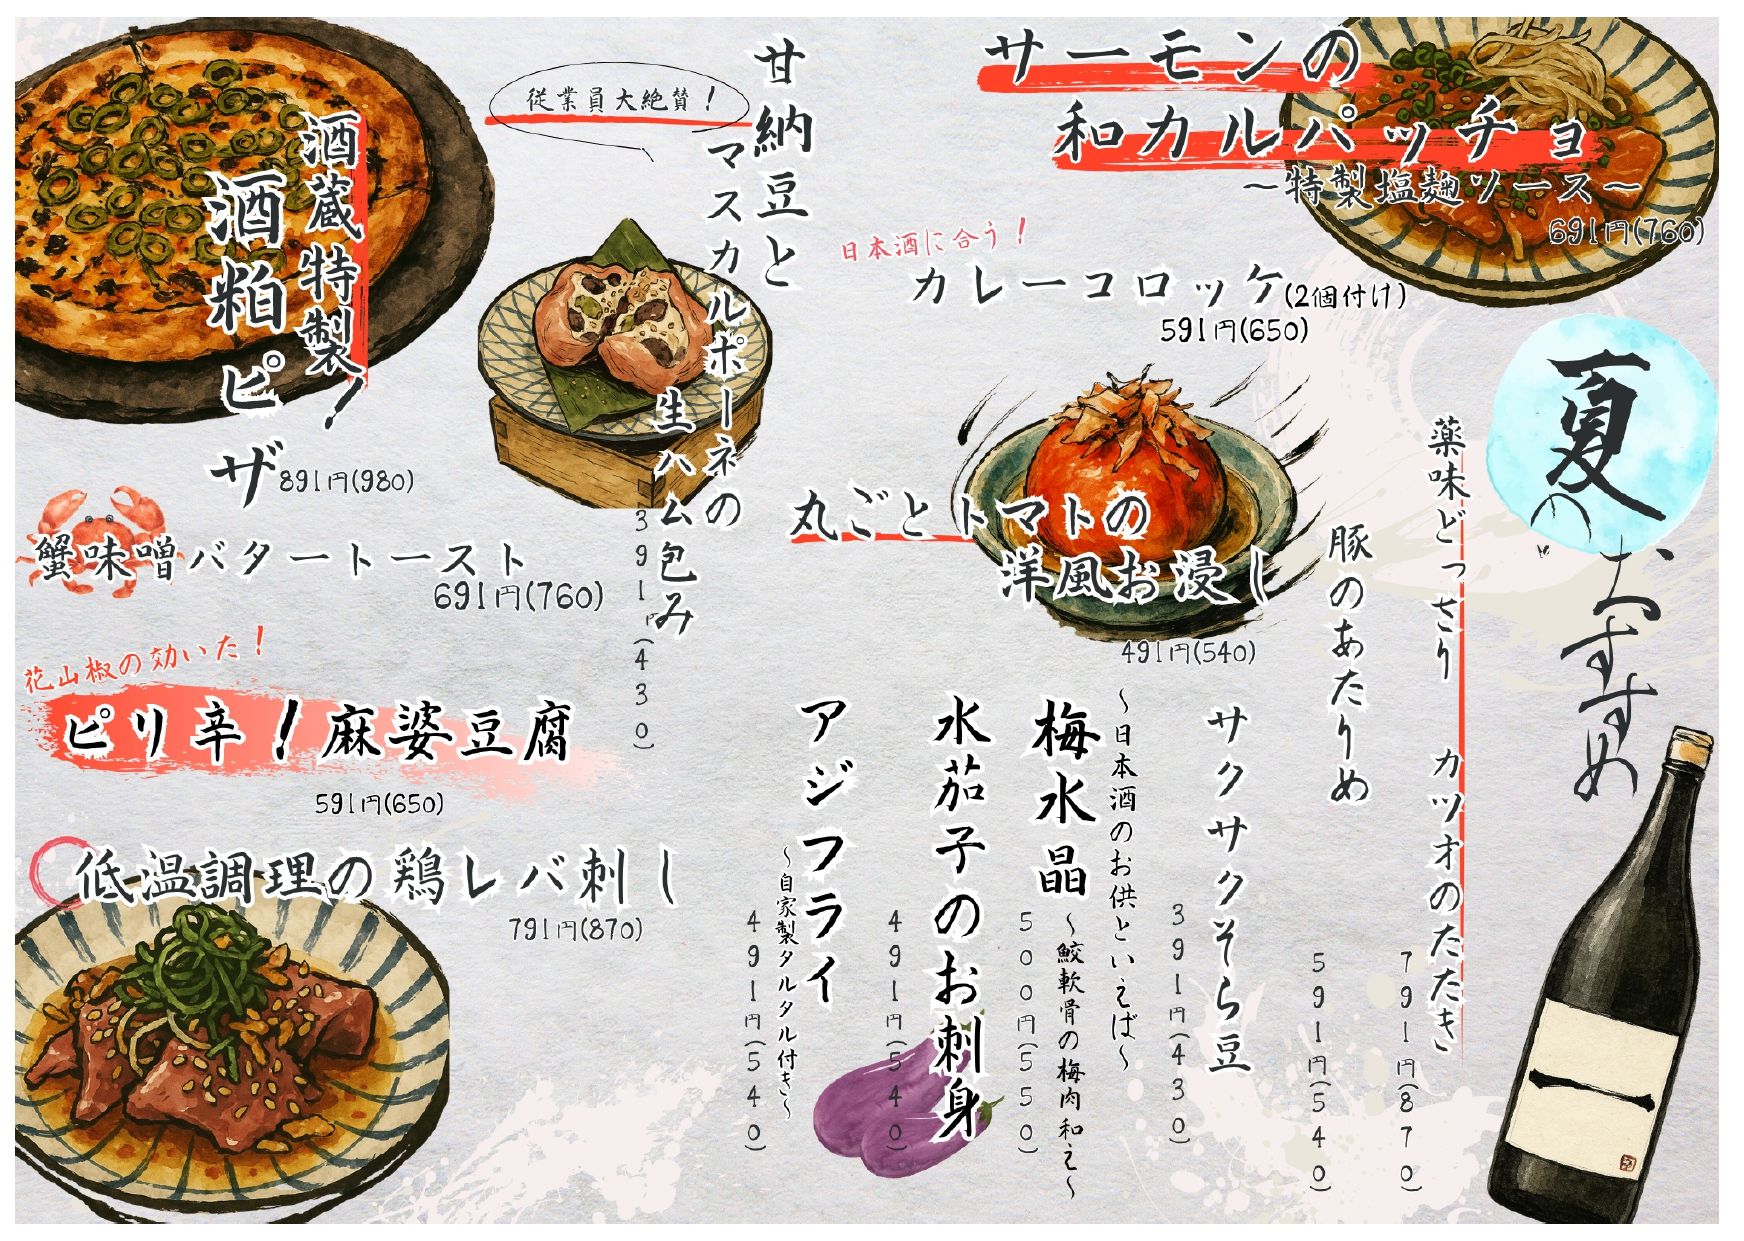 夏のおすすめ
薬味どっさり　カツオのたたき
791円(870)
豚のあたりめ
591円(540)
サーモンの
和カルパッチョ
～特製塩麹ソース～
691円(760)
日本酒に合う！
カレーコロッケ(2個付け)
591円(650)
丸ごとトマトの
洋風お浸し
491円(540)
サクサクそら豆
391円(430)
～日本酒のお供といえば～
梅水晶
～鮫軟骨の梅肉和え～
500円(550)
水茄子のお刺身
491円(540)
アジフライ
～自家製タルタル付き～
491円(540)
従業員大絶賛！
甘納豆と
マスカルポーネの
生ハム包み
391円(430)
酒蔵特製！
酒粕ピザ
891円(980)
蟹味噌バタートースト
691円(760)
花山椒の効いた！
ピリ辛！麻婆豆腐
591円(650)
低温調理の鶏レバ刺し
791円(870)
一